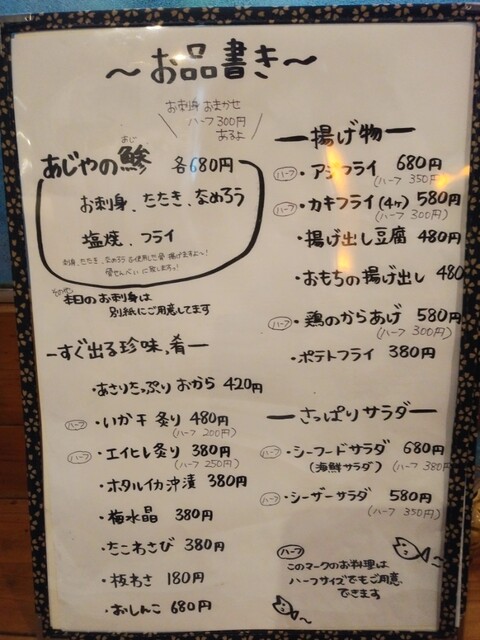 ～お品書き～
お刺身おまかせ
ハーフ300円
あるよ
あじやの鯵 各680円
あじ
お刺身、たたき、なめろう
塩焼、フライ
刺身、たたき、なめろうを使用した骨揚げますよ～!
骨せんべいに致しますっ!
その他
本日のお刺身は
別紙にご用意してます
ーすぐ出る珍味、肴ー
・あさりたっぷりおから 420円
ハーフ ・いか干炙り 480円
(ハーフ 200円)
ハーフ ・エイヒレ炙り 380円
(ハーフ 250円)
・ホタルイカ沖漬 380円
・梅水晶 380円
・たこわさび 380円
・板わさ 180円
・おしんこ 680円
ー揚げ物ー
ハーフ ・アジフライ 680円
(ハーフ 350円)
ハーフ ・カキフライ(4ヶ) 580円
(ハーフ 300円)
・揚げ出し豆腐 480円
・おもちの揚げ出し 480
ハーフ ・鶏のからあげ 580円
(ハーフ 300円)
・ポテトフライ 380円
ーさっぱりサラダー
ハーフ ・シーフードサラダ 680円
(海鮮サラダ) (ハーフ 380円
ハーフ ・シーザーサラダ 580円
(ハーフ 350円)
ハーフ
このマークのお料理は
ハーフサイズでもご用意
できます